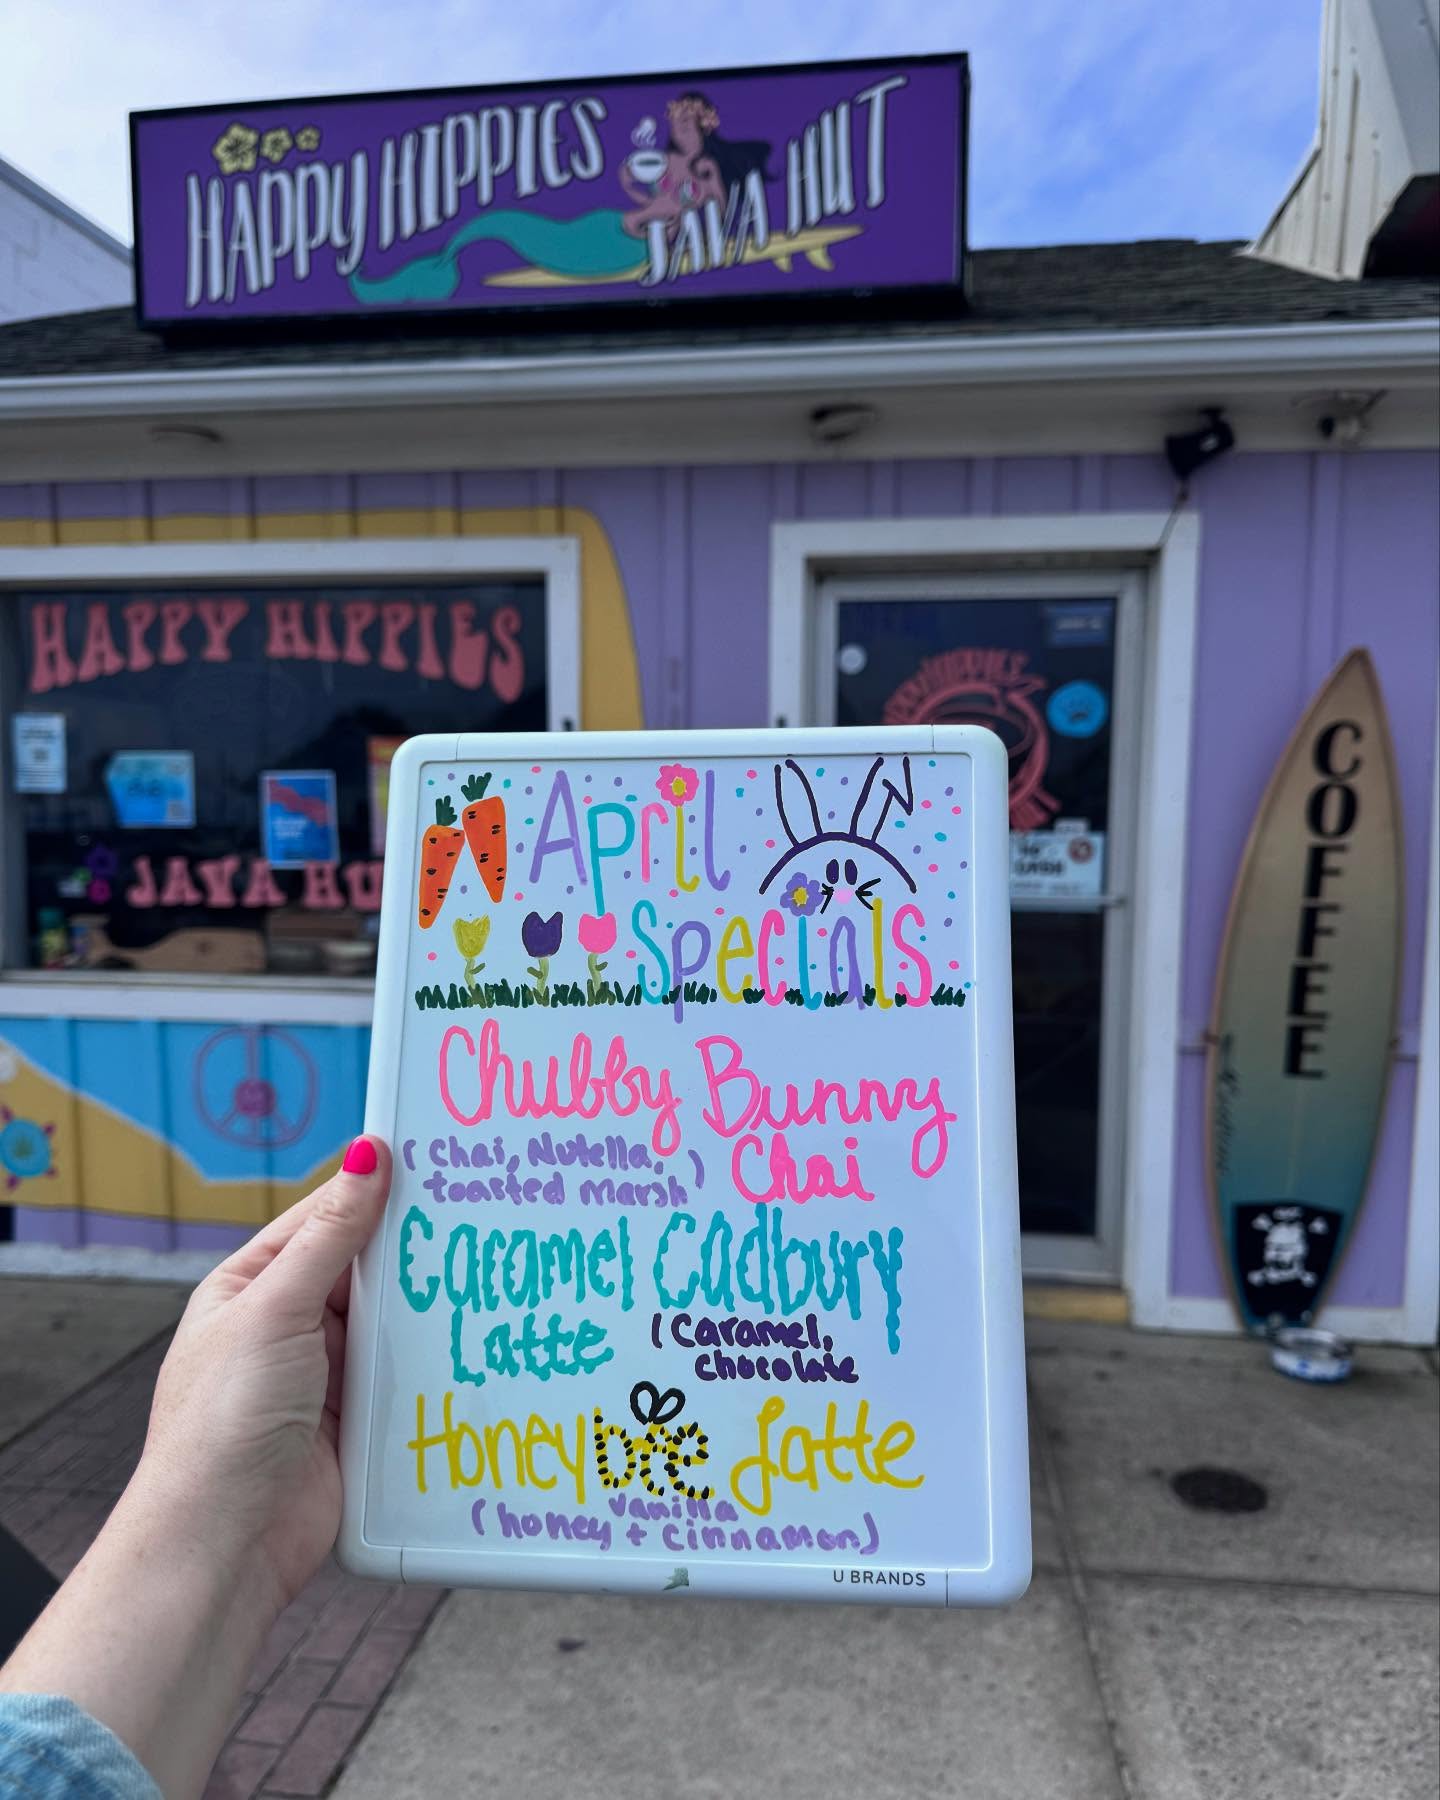 HAPPY HIPPIES
JAVA HUT
HAPPY HIPPIES
JAVA HU
COFFEE
April
Specials
Chubby Bunny
Chai
(Chai, Nutella,
toasted marsh)
Caramel Cadbury
Latte
(Caramel,
chocolate
Honeybee Latte
vanilla
(honey + cinnamon)
U BRANDS